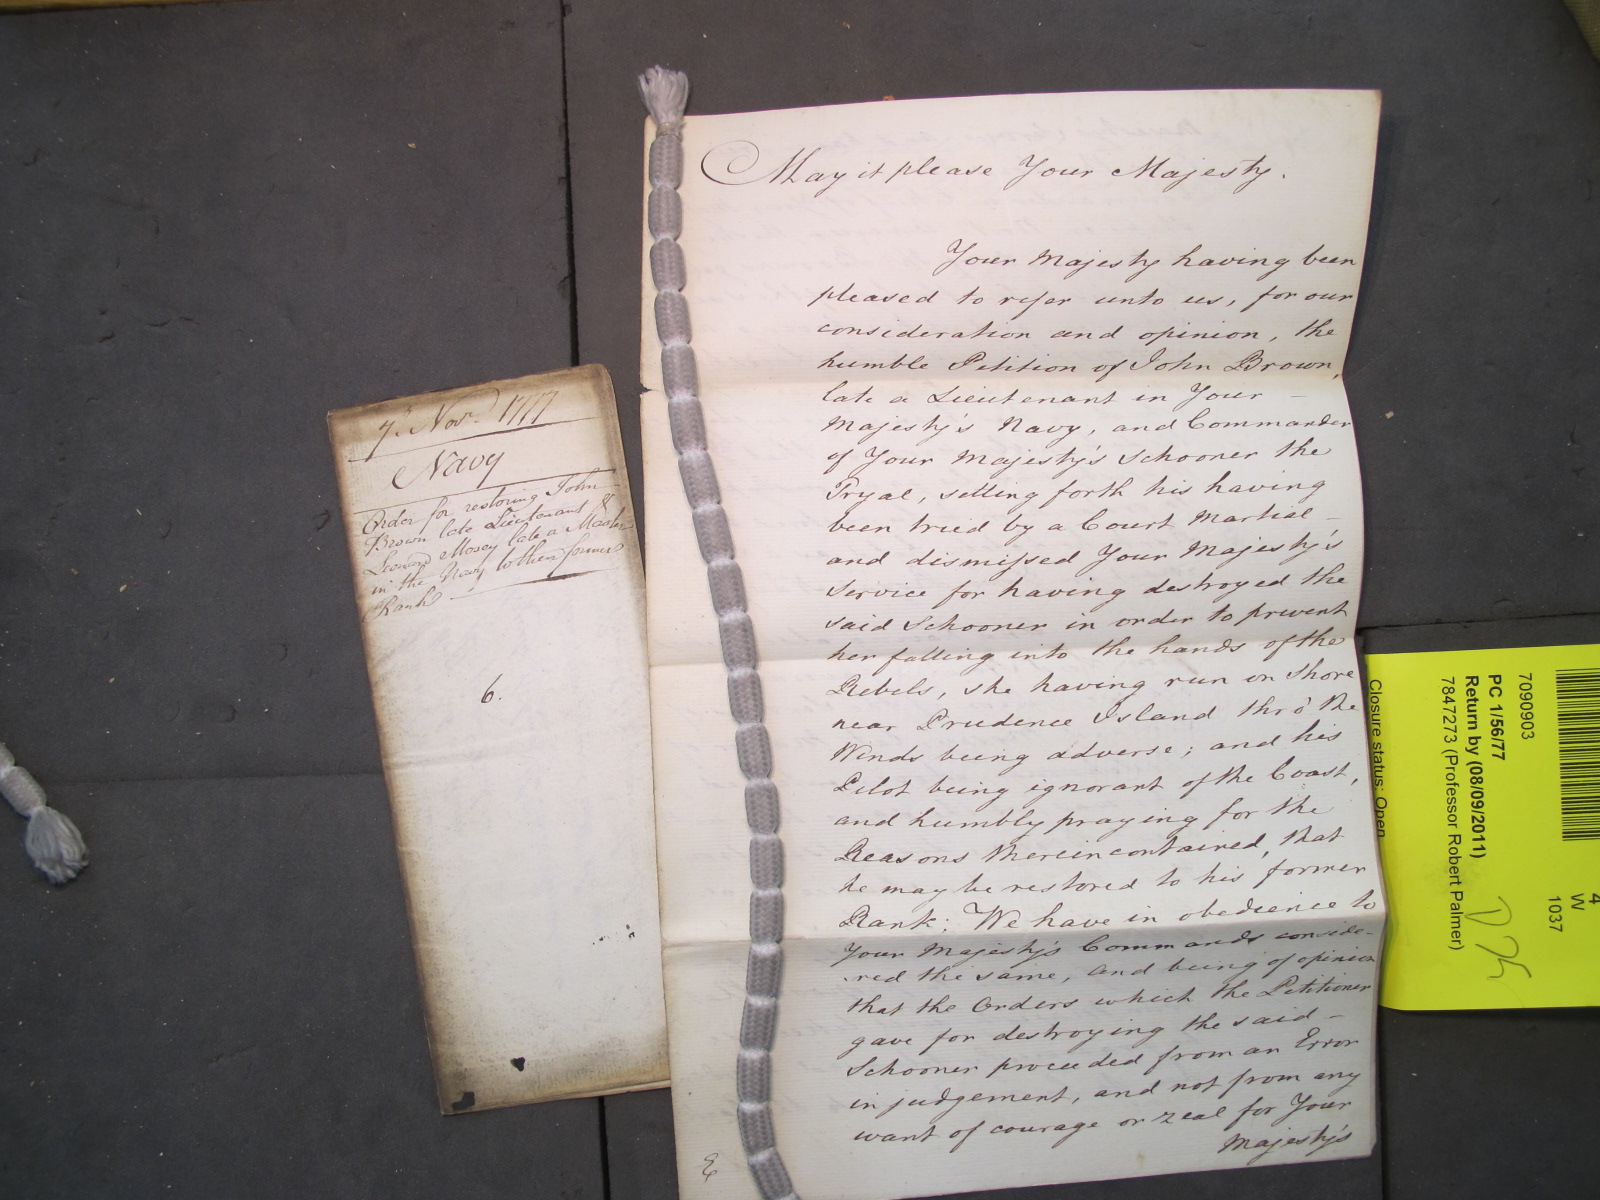 7th. Novr. 1777
Navy
Order for restoring John
Brown late Lieutenant &
Leonard Mosey late a Master
in the Navy to their former
Rank
6.
May it please Your Majesty.
Your Majesty having been
pleased to refer unto us, for our
consideration and opinion, the
humble Petition of John Brown,
late a Lieutenant in Your
Majesty's Navy, and Commander
of Your Majesty's Schooner the
Tryal, setting forth his having
been tried by a Court Martial
and dismissed Your Majesty's
Service for having destroyed the
said Schooner in order to prevent
her falling into the hands of the
Rebels, she having run on Shore
near Prudence Island thro' the
Winds being adverse; and his
Pilot being ignorant of the Coast,
and humbly praying for the
Reasons therein contained, that
he may be restored to his former
Rank: We have in obedience to
Your Majesty's Commands conside-
red the same, and being of opinion
that the Orders which the Petitioner
gave for destroying the said
Schooner proceeded from an Error
in judgement, and not from any
want of courage or zeal for Your
Majesty's
Closure status: Open
7090903
PC 1/56/77
Return by (08/09/2011)
7847273 (Professor Robert Palmer)
4
W
1037